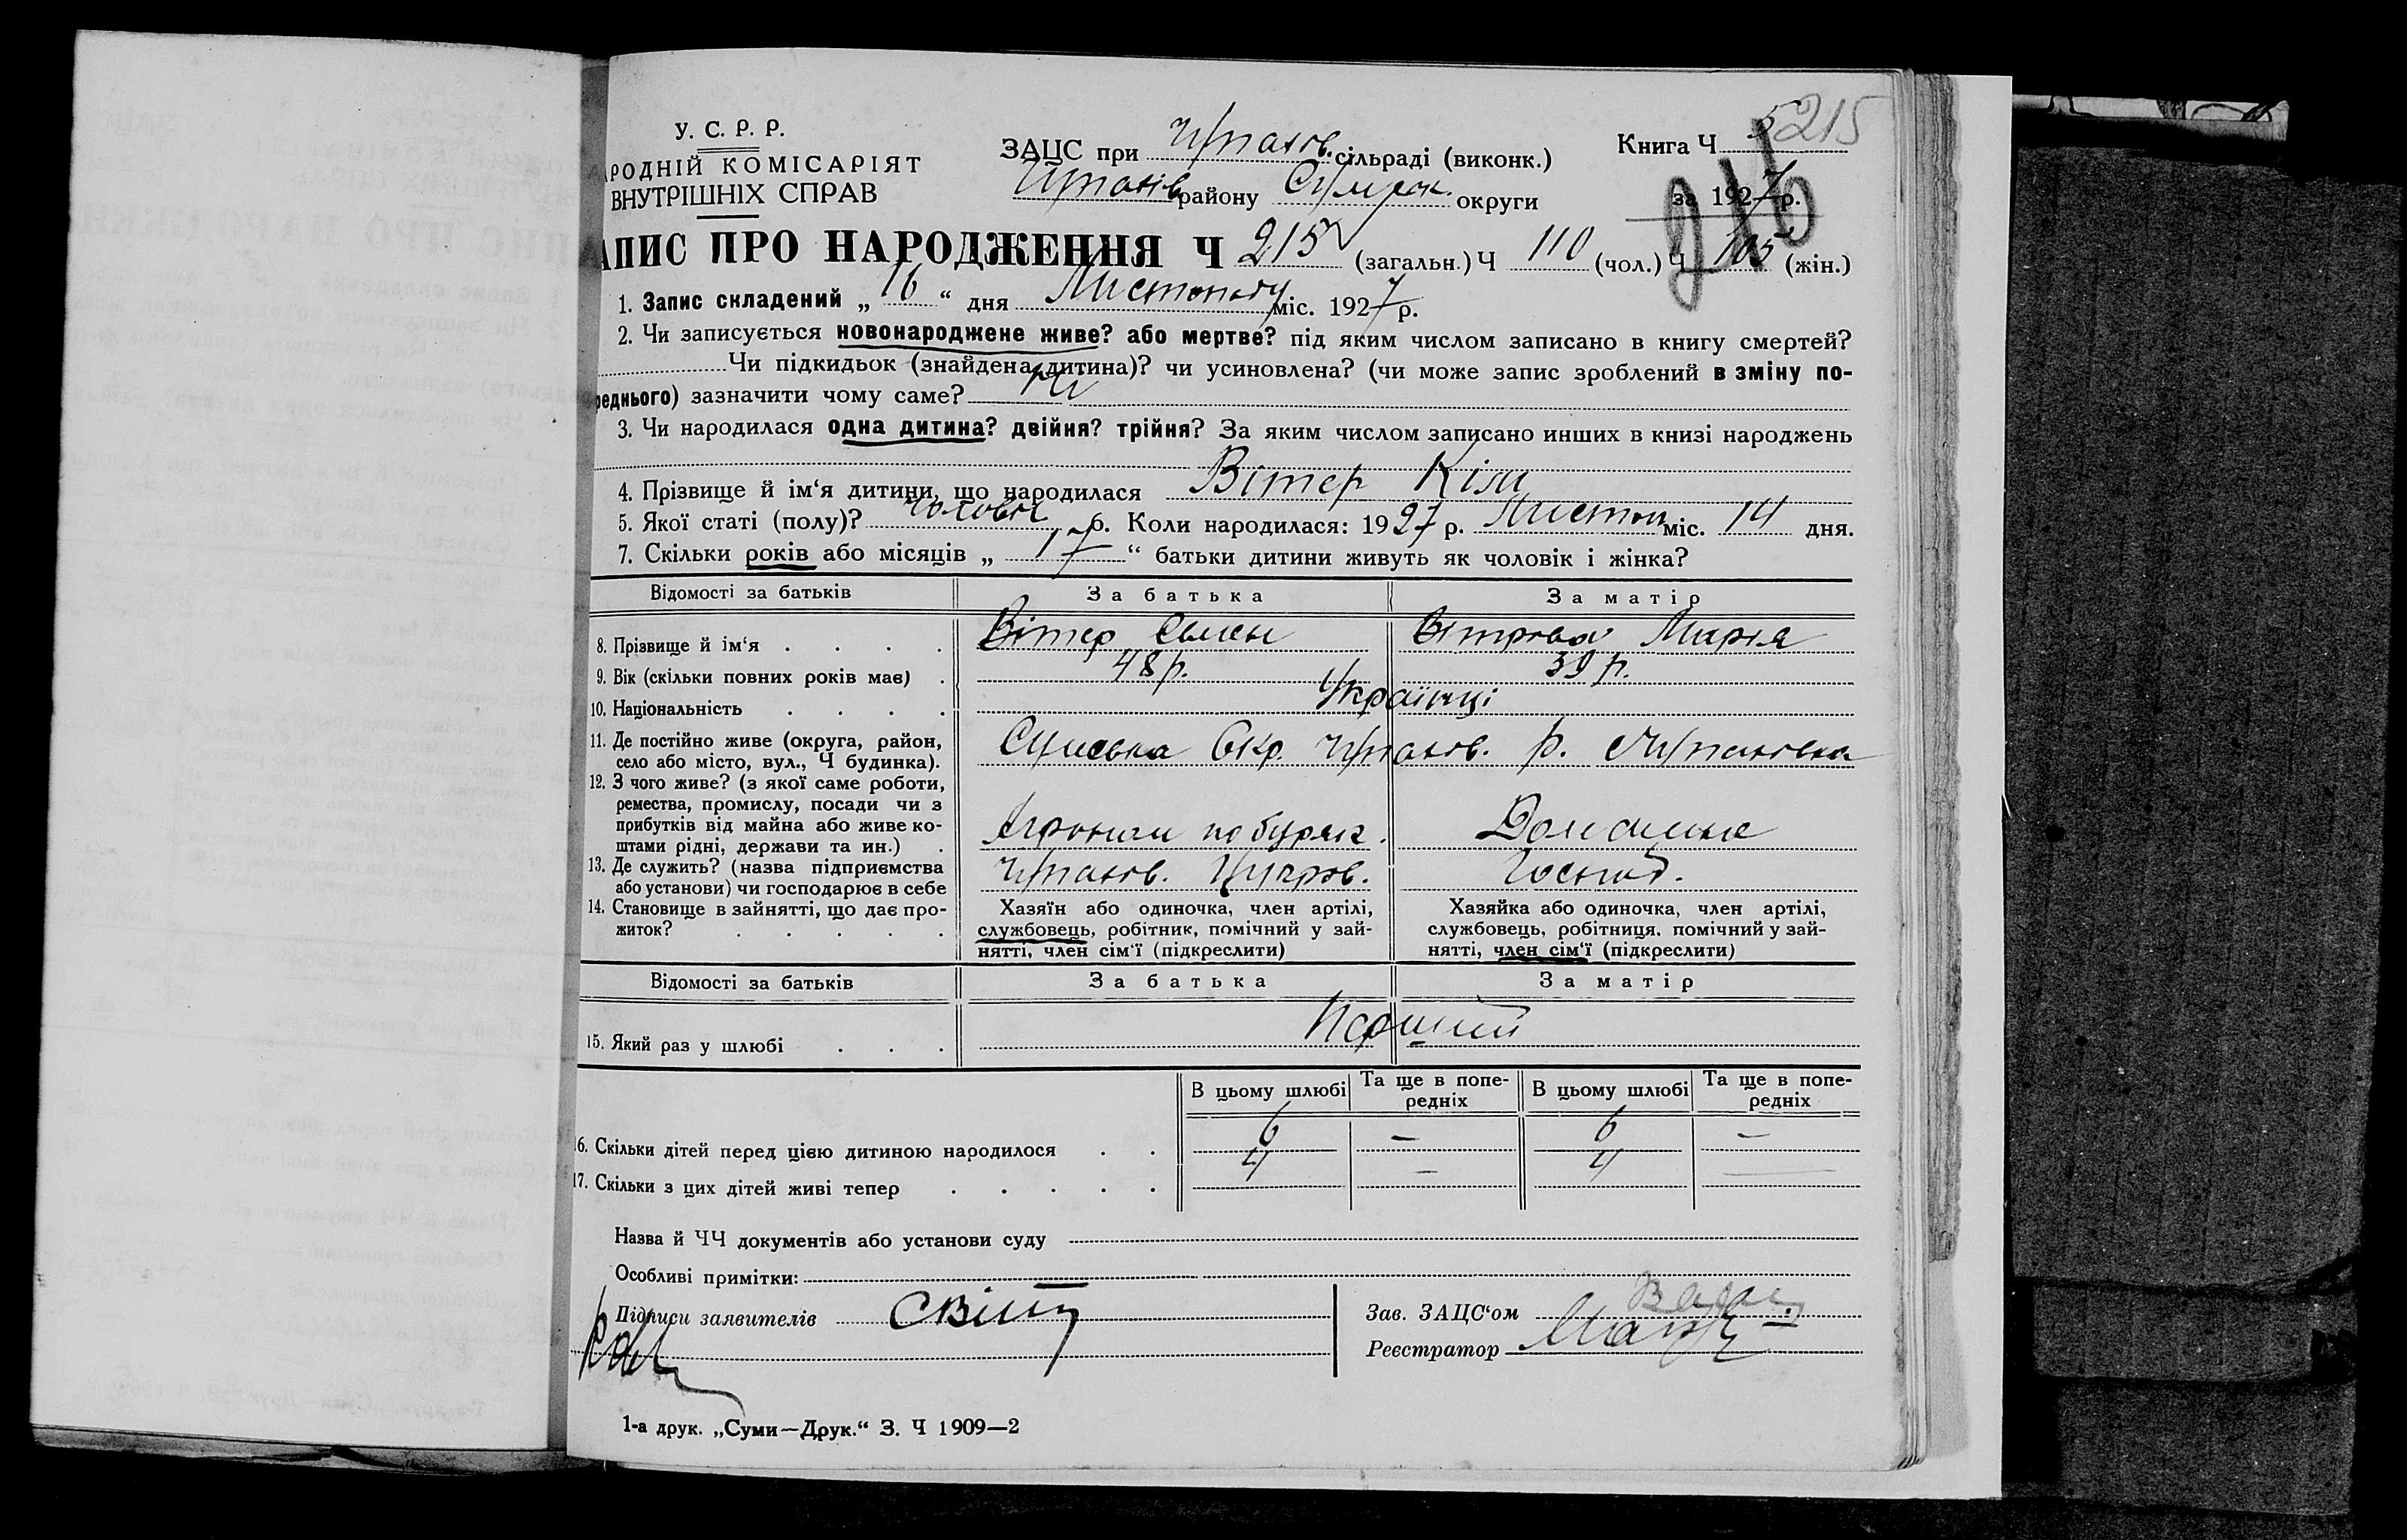 215
У. С. Р. Р.
АРОДНІЙ КОМІСАРІЯТ
ВНУТРІШНІХ СПРАВ
ЗАЦС при Чупахів. сільраді (виконк.)
Чупахів району Сумськ. округи
Книга Ч 5
за 1927 р.
216
АПИС ПРО НАРОДЖЕННЯ Ч 215 (загальн.) Ч 110 (чол.) Ч 105 (жін.)
1. Запис складений „ 16 “ дня Листопаду міс. 1927 р.
2. Чи записується новонароджене живе? або мертве? під яким числом записано в книгу смертей?
Чи підкидьок (знайдена дитина)? чи усиновлена? (чи може запис зроблений в зміну по-
реднього) зазначити чому саме? ні
3. Чи народилася одна дитина? двійня? трійня? За яким числом записано инших в книзі народжень
4. Прізвище й ім‘я дитини, що народилася Вітер Кім
5. Якої статі (полу)? чоловіч 6. Коли народилася: 1927 р. Листоп міс. 14 дня.
7. Скільки років або місяців „ 17 “ батьки дитини живуть як чоловік і жінка?
Відомості за батьків За батька За матір
8. Прізвище й ім‘я . . . . Вітер Семен Вітрова Мирія
9. Вік (скільки повних років має) . 48 р. 39 р.
10. Національність . . . . Українці
11. Де постійно живе (округа, район,
село або місто, вул., Ч будинка). Сумська Окр. Чупахів. р. с Чупаховка
12. З чого живе? (з якої саме роботи,
ремества, промислу, посади чи з
прибутків від майна або живе ко-
штами рідні, держави та ин.) . Агроном по буряк. Домашнє
13. Де служить? (назва підприємства
або установи) чи господарює в себе Чупахів. Цукров. Господ.
14. Становище в зайнятті, що дає про-
житок? . . . . .
Хазяїн або одиночка, член артілі,
службовець, робітник, помічний у зай-
нятті, член сім‘ї (підкреслити)
Хазяйка або одиночка, член артілі,
службовець, робітниця, помічний у зай-
нятті, член сім‘ї (підкреслити)
Відомості за батьків За батька За матір
15. Який раз у шлюбі . . . Перший
В цьому шлюбі Та ще в попе-редніх В цьому шлюбі Та ще в попе-редніх
16. Скільки дітей перед цією дитиною народилося . . 6 — 6 —
17. Скільки з цих дітей живі тепер . . . . . 4 — 4 —
Назва й ЧЧ документів або установи суду
Особливі примітки:
Підписи заявителів
Зав. ЗАЦС‘ом
Реєстратор
1-а друк. „Суми—Друк.“ З. Ч 1909—2